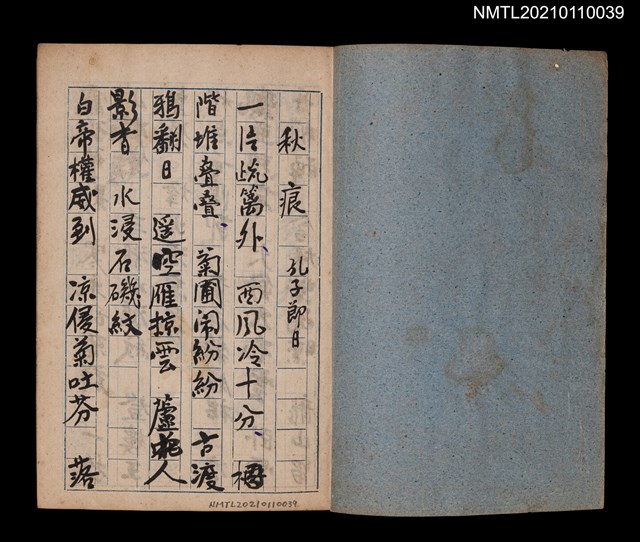 NMTL20210110039
秋痕 孔子節日
一片疏篱外、西風冷十分、
階堆叠叠、菊圃闹紛紛 古渡
鴉翻日 遥空雁掠雲 蘆人
影杳 水浸石磯紋
白帝權威到 凉侵菊吐芬 落
NMTL20210110039